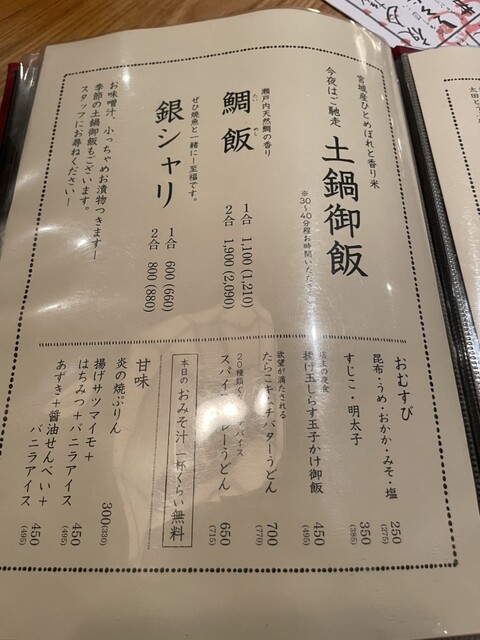 宮城産ひとめぼれと香り米
今夜はご馳走 土鍋御飯
※30～40分程お時間いただき
瀬戸内天然鯛の香り
鯛飯
たい めし
1合 1,100 (1,210)
2合 1,900 (2,090)
ぜひ焼魚と一緒に！至福です。
銀シャリ
1合 600 (660)
2合 800 (880)
お味噌汁、小っちゃめお漬物つきますー
季節の土鍋御飯もございます。
スタッフにお尋ねくださいー
おむすび
昆布・うめ・おかか・みそ・塩 250 (275)
すじこ・明太子 350 (385)
揚げ玉しらす玉子かけ御飯 450 (495)
欲望が満たされる
たらこキ チバターうどん 700 (770)
スパイ レーうどん 650 (715)
本日のおみそ汁 一杯くらい無料
甘味
炎の焼ぷりん 300 (330)
揚げサツマイモ＋
はちみつ＋バニラアイス 450 (495)
あずき＋醤油せんべい＋
バニラアイス 450 (495)